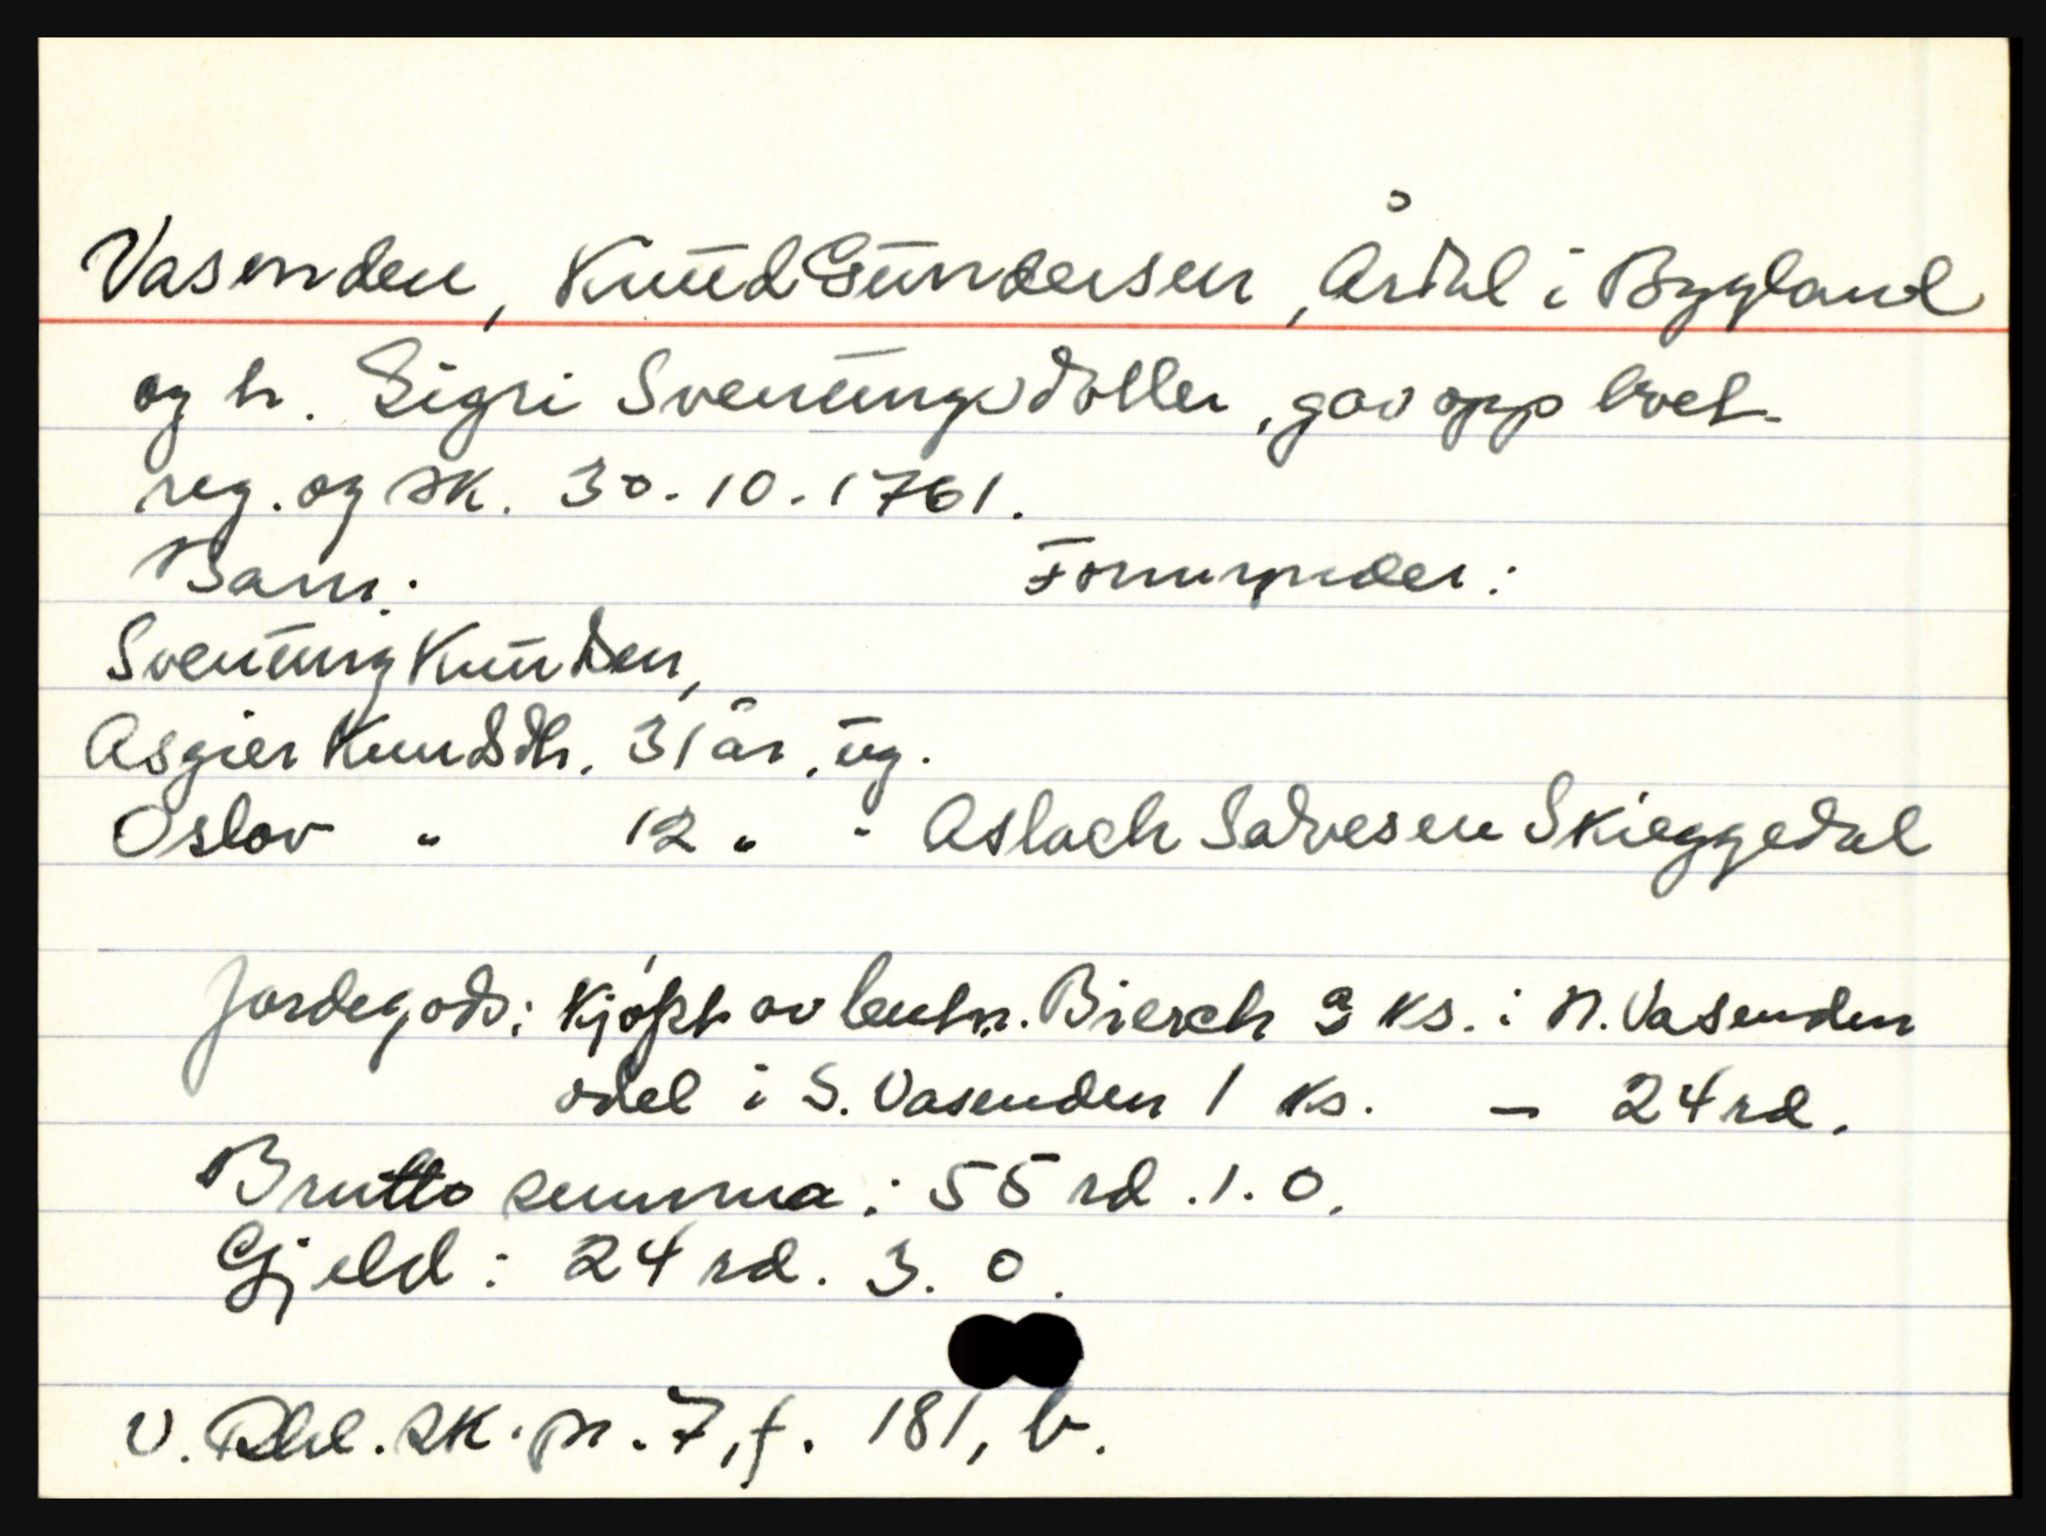 Vasenden, Knud Gundersen, Årdal i Bygland
og h. Sigri Svenungsdotter, gav opp boet.
reg. og sk. 30.10.1761.
Barn: Formynder:
Svenung Knudsen,
Asgier Knudsdtr. 31 år, ug.
Oslov " 12 " " Aslach Salvesen Skieggedal
Jordegods: Kjøpt av leutn. Bierch 3 ks. i N. Vasenden
odel i S. Vasenden 1 ks. — 24 rd.
Brutto summa: 55 rd. 1. 0.
Gjeld: 24 rd. 3. 0.
V. Rbl. sk. pr. 7, f. 181, b.